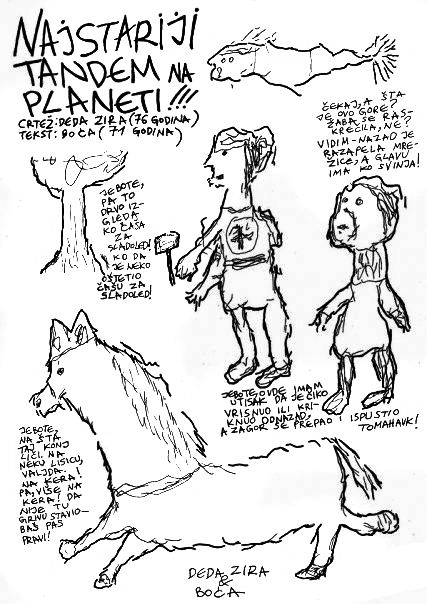 NAJSTARIJI
TANDEM NA
PLANETI!!!
CRTEŽ: DEDA ZIRA (76 GODINA)
TEKST: BOČA (71 GODINA)
ČEKAJ, A ŠTA
JE OVO GORE?
ŽABA SE RAS-
KREČILA, NE?
VIDIM-NAZAD JE
RAZAPELA MRE-
ŽICE, A GLAVU
IMA KO SVINJA!
JEBOTE,
PA TO
DRVO IZ-
GLEDA
KO ČAŠA
ZA
SLADOLED!
KO DA
JE NEKO
OŠTETIO
ČAŠU ZA
SLADOLED!
JEBOTE, OVDE IMAM
UTISAK DA JE ČIKO
VRISNUO ILI KRI-
KNUO ODNAZAD,
A ZAGOR SE PREPAO I ISPUSTIO
TOMAHAVK!
JEBOTE,
NA ŠTA
TAJ KONJ
LIČI. NA
NEKU LISICU,
VALJDA.
NA KERA!
PA, VIŠE NA
KERA! DA
NIJE TU
GRIVU STAVIO-
BAŠ PAS
PRAVI!
DEDA ZIRA
&
BOČA